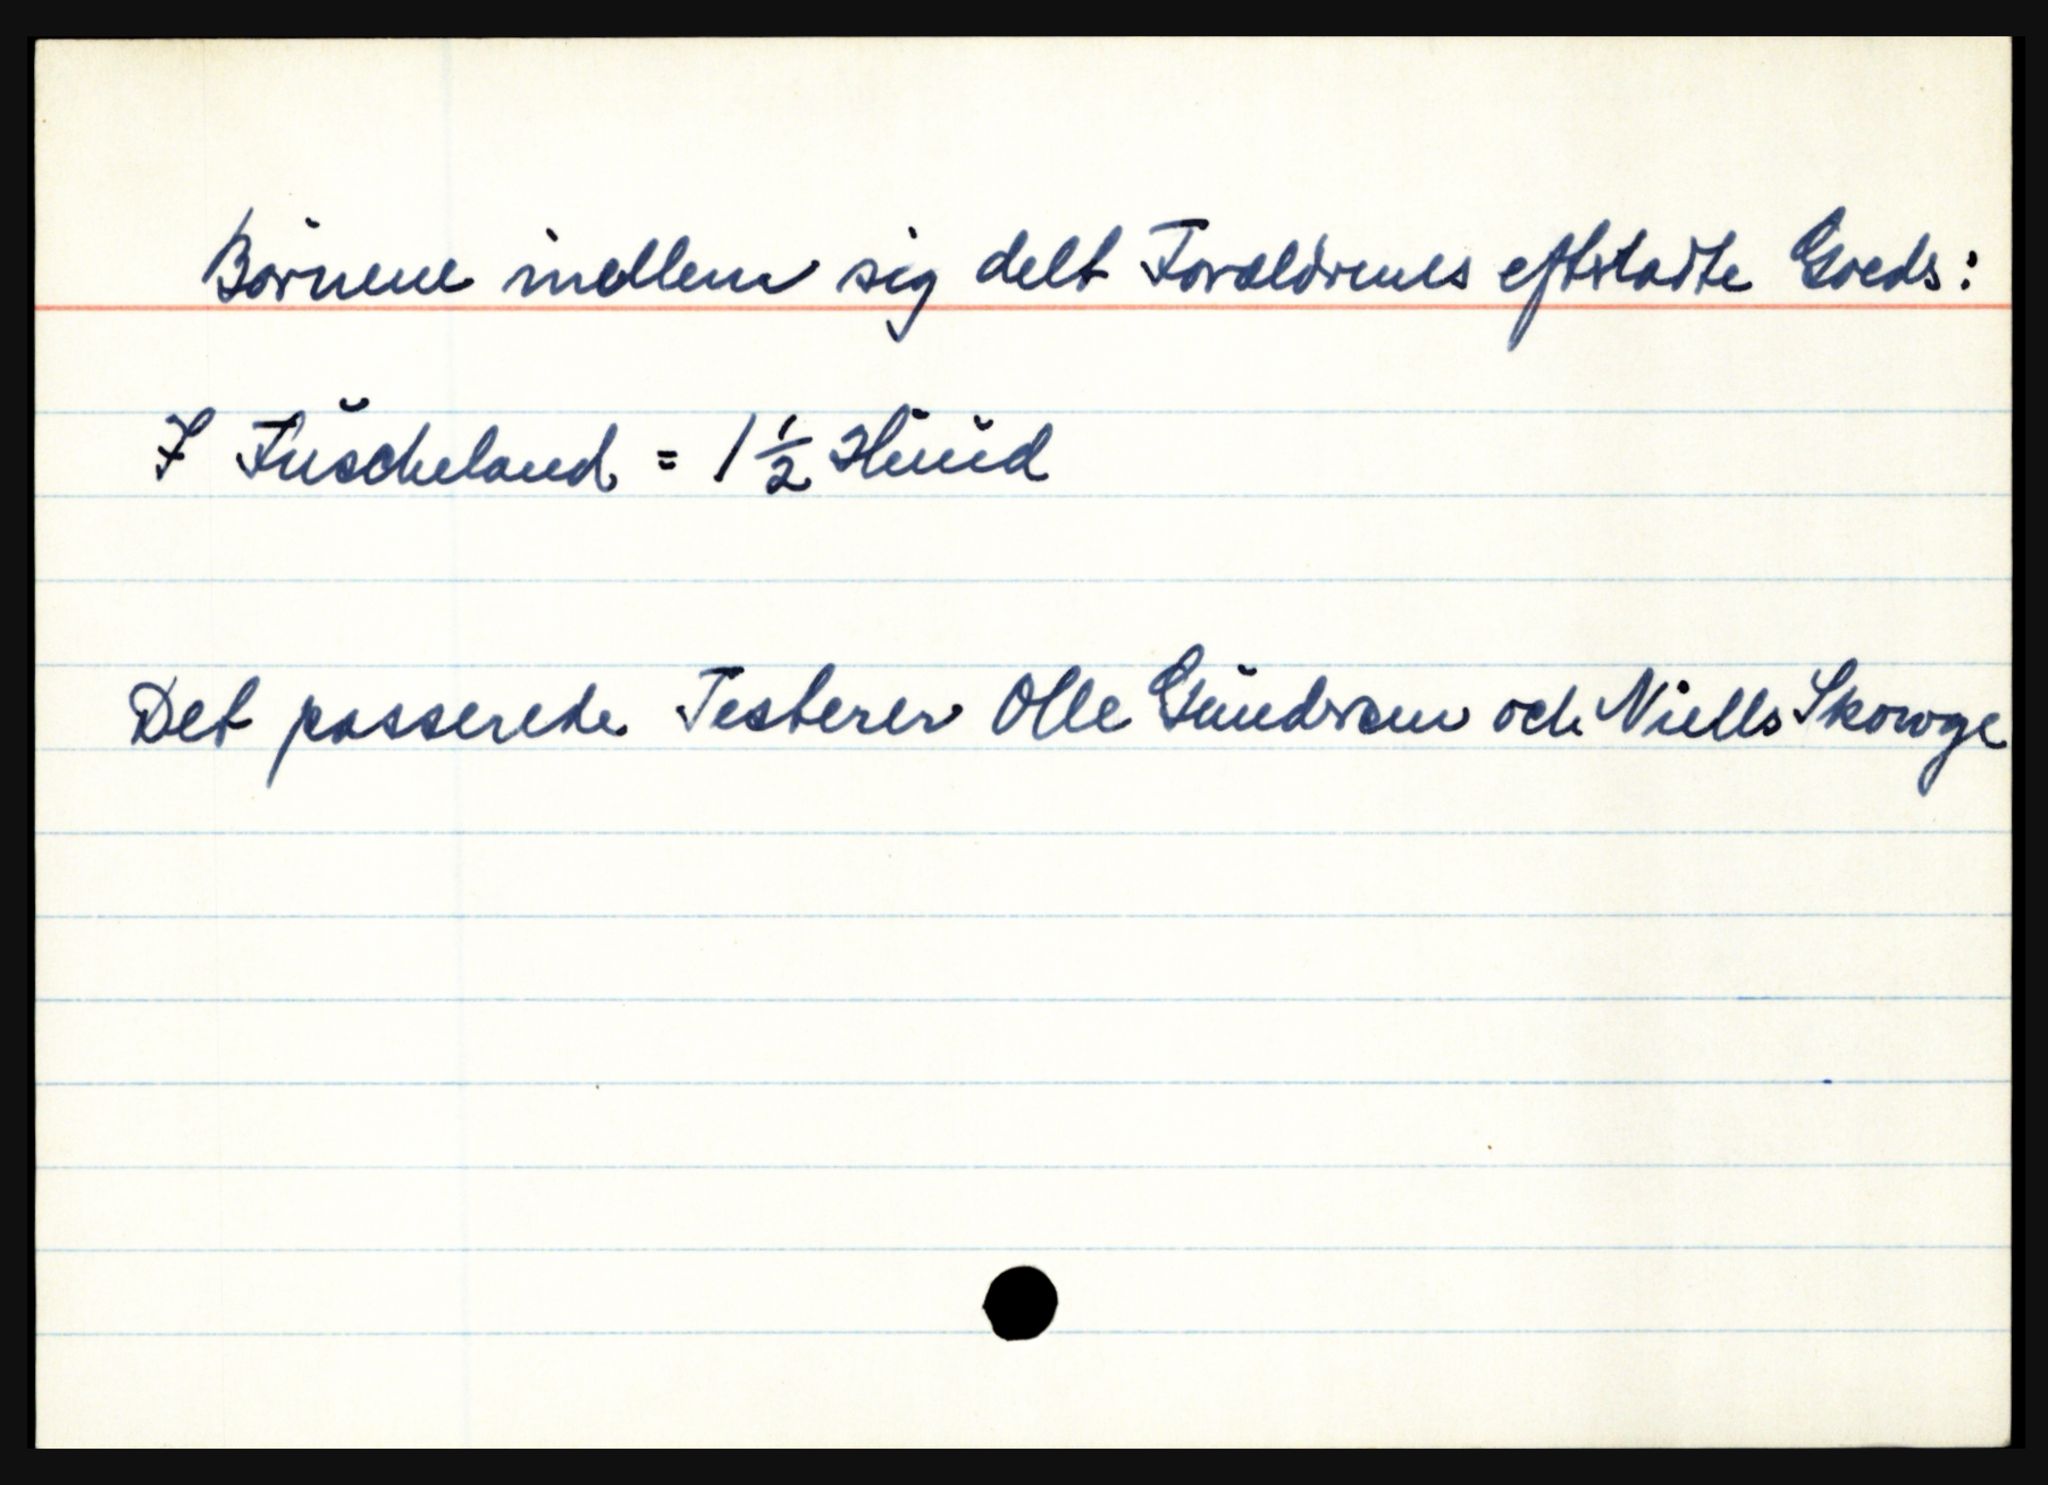 Børnene imellem sig delt Forældrenes eftrladte Goeds:
I Fuscheland = 1 1/2 Huud
Det passerede Testerer Olle Gundersen och Niells Skowge